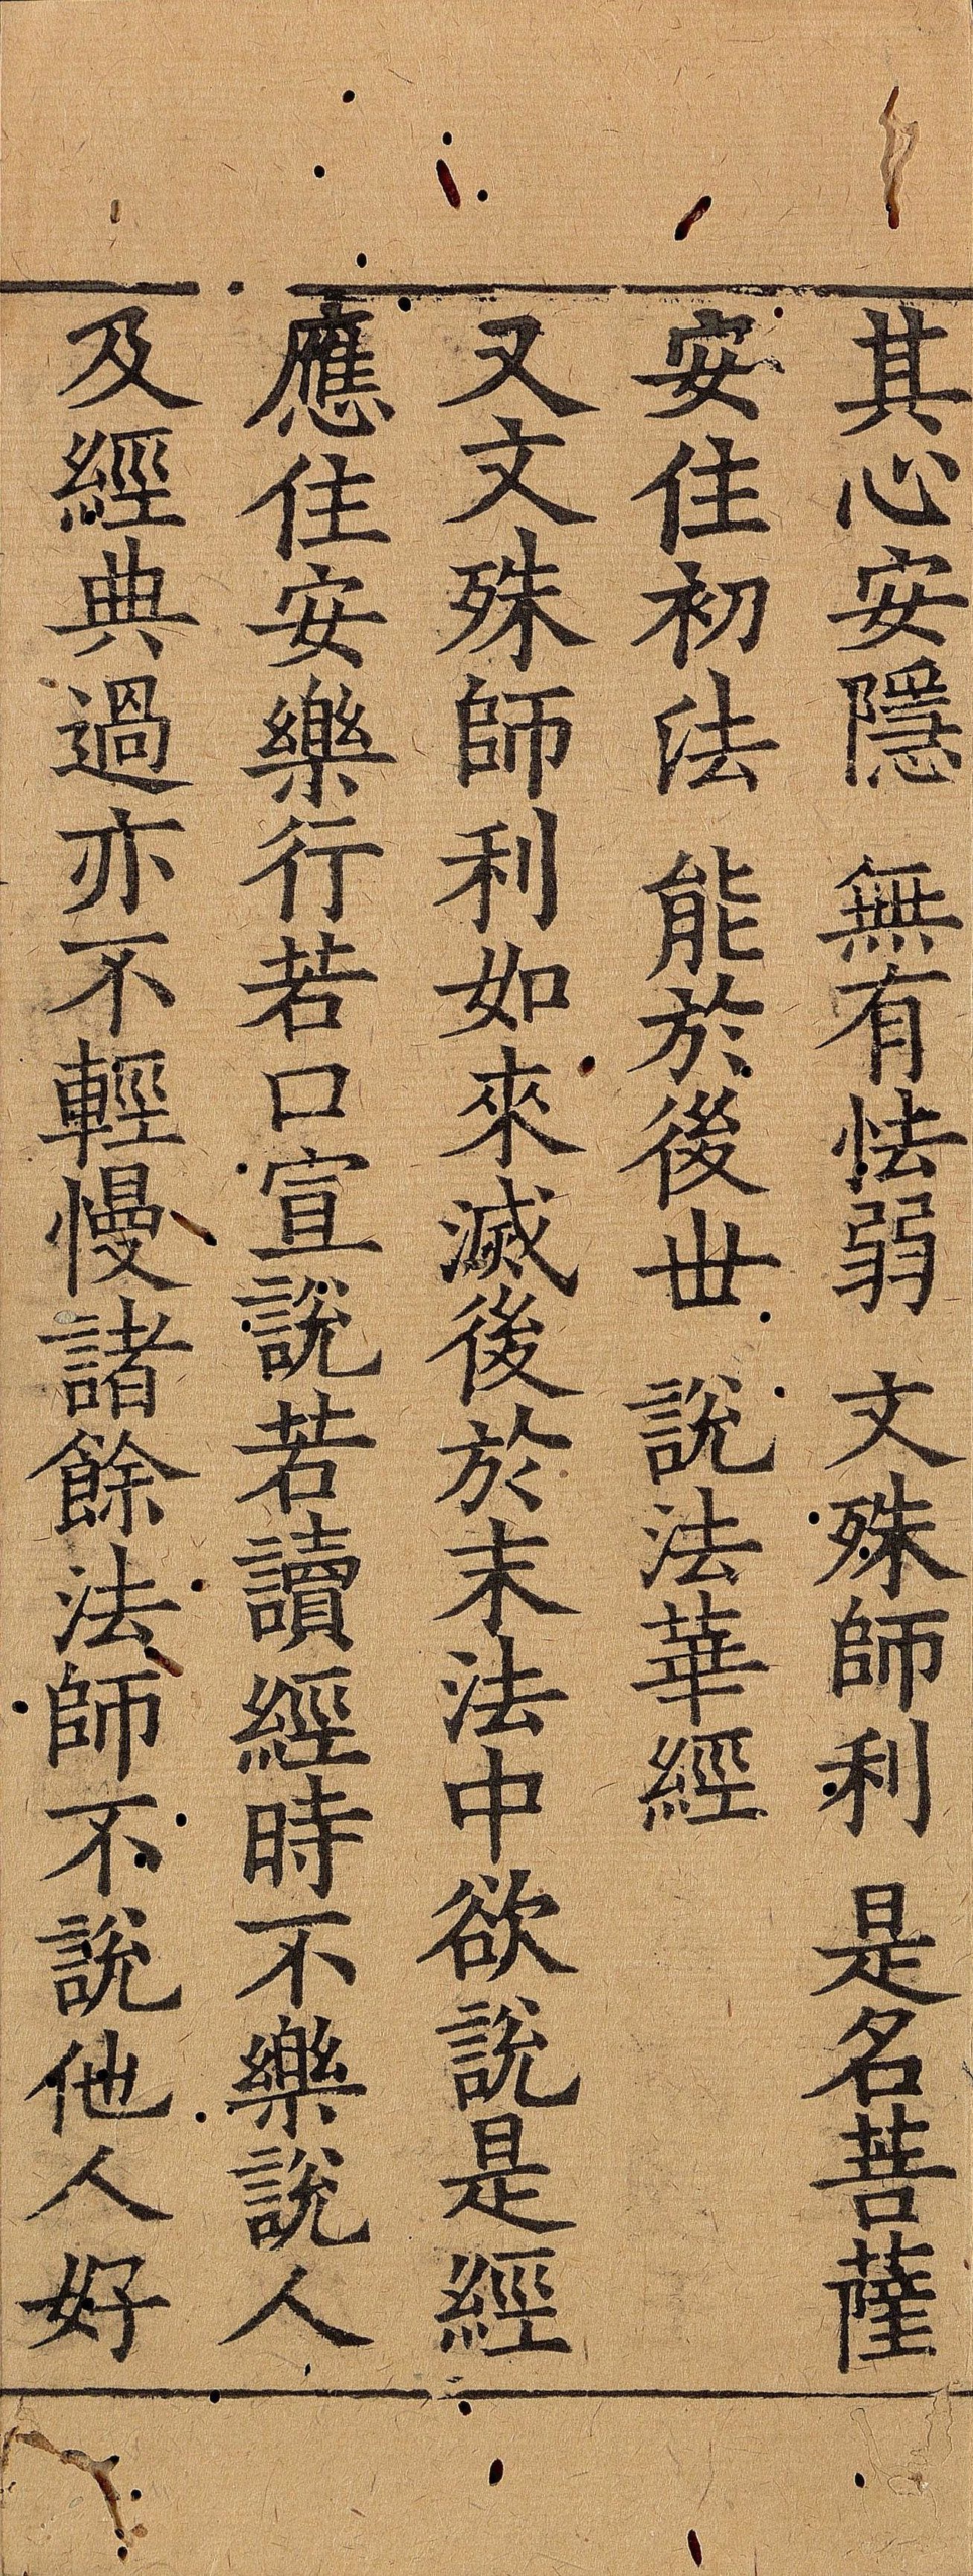 其心安隱　無有怯弱　文殊師利　是名菩薩
安住初法　能於後世　說法華經
又文殊師利如來滅後於末法中欲說是經
應住安樂行若口宣說若讀經時不樂說人
及經典過亦不輕慢諸餘法師不說他人好